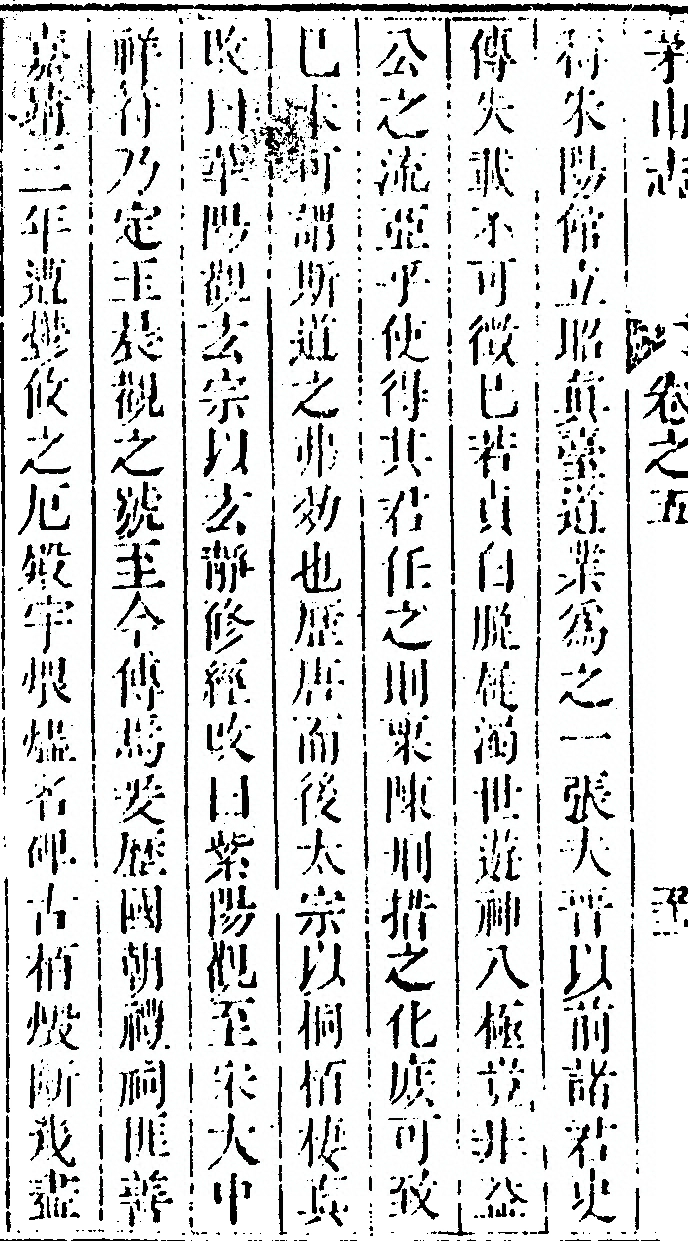 茅山志 卷之五
得朱陽館立昭真臺道業爲之一張大晉以前諸君史
傳失載不可徵已若貞白脫屣濁世遊神八極豈非益
公之流亞乎使得其君任之則衆陳刑措之化庶可致
已未可謂斯道之弗効也歷唐而後太宗以桐栢棲真
改曰華陽觀玄宗以玄靜修經改曰紫陽觀至宋大中
祥符乃定玉晨觀之號至今傳焉爰歷國朝禋祠匪善
嘉靖三年遭鬱攸之厄殿宇煨燼名碑古栢燬斷幾盡